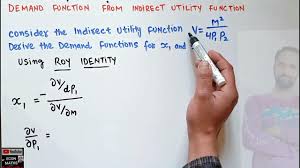 DEMAND FUNCTION FROM INDIRECT UTILITY FUNCTION
Consider the Indirect Utility Function V = M²/4P₁P₂
Derive the Demand Functions for x₁ and
Using ROY IDENTITY
x₁ = - ∂V/∂P₁ / ∂V/∂M
∂V/∂P₁ =
ECON MATHS